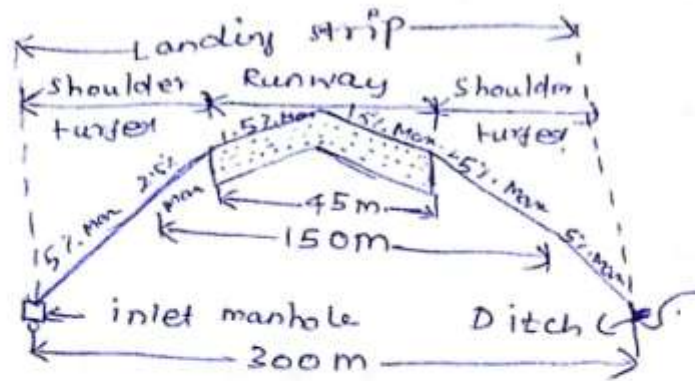 Landing strip
Shoulder Runway Shoulder
turfed turfed
1.5% Max 1.5% Max.
2.5% Max 2.5% Max
5% Max 5% Max
45m
150m
inlet manhole Ditch
300m